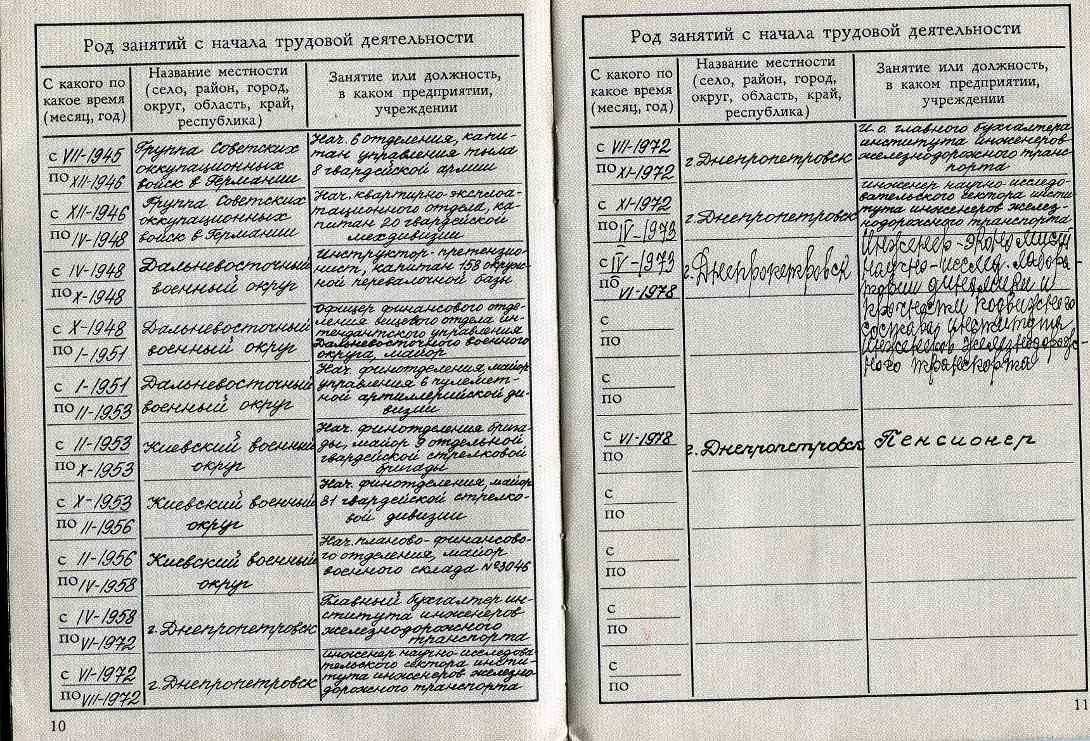 Род занятий с начала трудовой деятельности
С какого по
какое время
(месяц, год)
Название местности
(село, район, город,
округ, область, край,
республика)
Занятие или должность,
в каком предприятии,
учреждении
с VII-1945
по XII-1946
Группа Советских
оккупационных
войск в Германии
Нач. 6 отделения, капи-
тан управления тыла
8 гвардейской армии
с XII-1946
по IV-1948
Группа Советских
оккупационных
войск в Германии
Нач. квартирно-эксплоа-
тационного отдела, ка-
питан 20 гвардейской
мехдивизии
с IV-1948
по X-1948
Дальневосточный
военный округ
инструктор-претензио-
нист, капитан 158 окруж-
ной перевалочной базы
с X-1948
по I-1951
Дальневосточный
военный округ
офицер финансового отде-
ления вещевого отдела ин-
тендантского управления
Дальневосточного военного
округа, майор
с I-1951
по II-1953
Дальневосточный
военный округ
Нач. финотделения, майор
управления 6 пулемет-
ной артиллерийской ди-
визии
с II-1953
по X-1953
Киевский военный
округ
Нач. финотделения брига-
ды, майор 9 отдельной
гвардейской стрелковой
бригады
с X-1953
по II-1956
Киевский военный
округ
Нач. финотделения, майор
81 гвардейской стрелко-
вой дивизии
с II-1956
по IV-1958
Киевский военный
округ
Нач. планово-финансово-
го отделения, майор
военного склада №3046
с IV-1958
по VI-1972
г. Днепропетровск
Главный бухгалтер ин-
ститута инженеров
железнодорожного
транспорта
с VI-1972
по VII-1972
г. Днепропетровск
инженер научно-исследова-
тельского сектора инсти-
тута инженеров железно-
дорожного транспорта
10
Род занятий с начала трудовой деятельности
С какого по
какое время
(месяц, год)
Название местности
(село, район, город,
округ, область, край,
республика)
Занятие или должность,
в каком предприятии,
учреждении
с VII-1972
по XI-1972
г. Днепропетровск
И. о. главного бухгалтера
института инженеров
железнодорожного транс-
порта
с XI-1972
по IV-1973
г. Днепропетровск
инженер научно-исследо-
вательского сектора инсти-
тута инженеров желез-
нодорожного транспорта
с IV-1973
по VI-1978
г. Днепропетровск
Инженер-экономист
научно-исслед. лабора-
тории динамики и
прочности подвижного
состава института
инженеров железнодорож-
ного транспорта
с
по
с
по
с VI-1978
по
г. Днепропетровск
Пенсионер
с
по
с
по
с
по
с
по
11